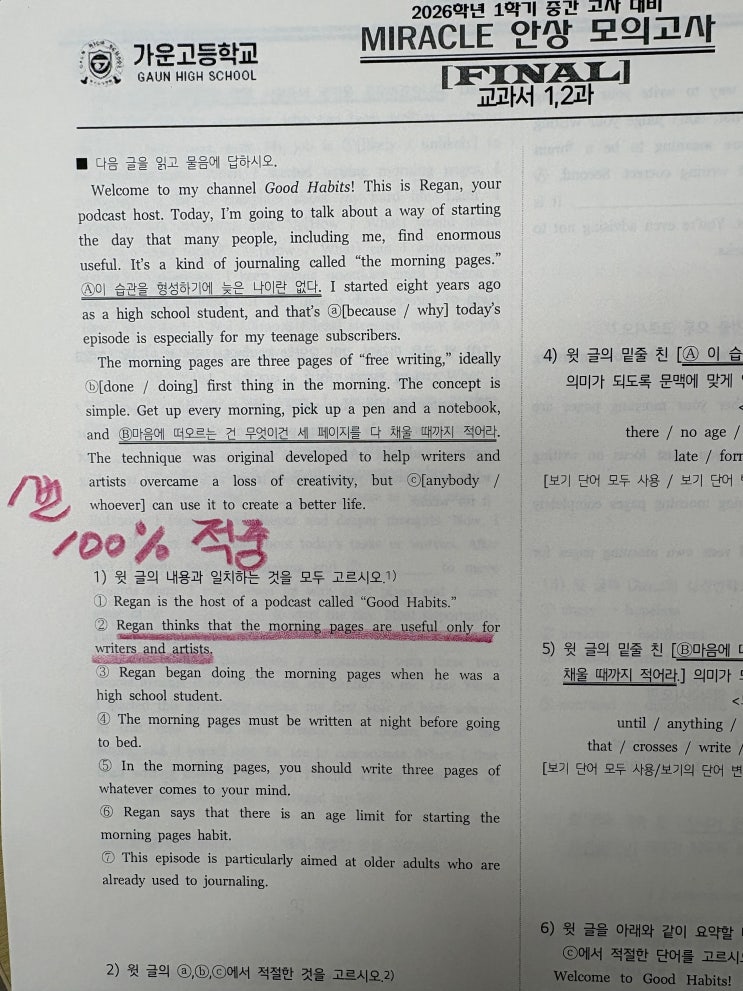 2026학년 1학기 중간 고사 대비
가운고등학교
GAUN HIGH SCHOOL
MIRACLE 안상 모의고사
[FINAL]
교과서 1,2과
■ 다음 글을 읽고 물음에 답하시오.
Welcome to my channel Good Habits! This is Regan, your
podcast host. Today, I'm going to talk about a way of starting
the day that many people, including me, find enormous
useful. It's a kind of journaling called “the morning pages.”
Ⓐ이 습관을 형성하기에 늦은 나이란 없다. I started eight years ago
as a high school student, and that's ⓐ[because / why] today's
episode is especially for my teenage subscribers.
The morning pages are three pages of “free writing,” ideally
ⓑ[done / doing] first thing in the morning. The concept is
simple. Get up every morning, pick up a pen and a notebook,
and Ⓑ마음에 떠오르는 건 무엇이건 세 페이지를 다 채울 때까지 적어라.
The technique was original developed to help writers and
artists overcame a loss of creativity, but ⓒ[anybody /
whoever] can use it to create a better life.
100% 적중
1) 윗 글의 내용과 일치하는 것을 모두 고르시오.1)
① Regan is the host of a podcast called “Good Habits.”
② Regan thinks that the morning pages are useful only for
writers and artists.
③ Regan began doing the morning pages when he was a
high school student.
④ The morning pages must be written at night before going
to bed.
⑤ In the morning pages, you should write three pages of
whatever comes to your mind.
⑥ Regan says that there is an age limit for starting the
morning pages habit.
⑦ This episode is particularly aimed at older adults who are
already used to journaling.
2) 윗 글의 ⓐ,ⓑ,ⓒ에서 적절한 것을 고르시오.2)
4) 윗 글의 밑줄 친 [Ⓐ 이 습
의미가 되도록 문맥에 맞게
there / no age /
late / for
[보기 단어 모두 사용 / 보기 단어
5) 윗 글의 밑줄 친 [Ⓑ마음에
채울 때까지 적어라.] 의미가
until / anything /
that / crosses / write /
[보기 단어 모두 사용/보기의 단어 변
6) 윗 글을 아래와 같이 요약할
ⓒ에서 적절한 단어를 고르시오
Welcome to Good Habits!